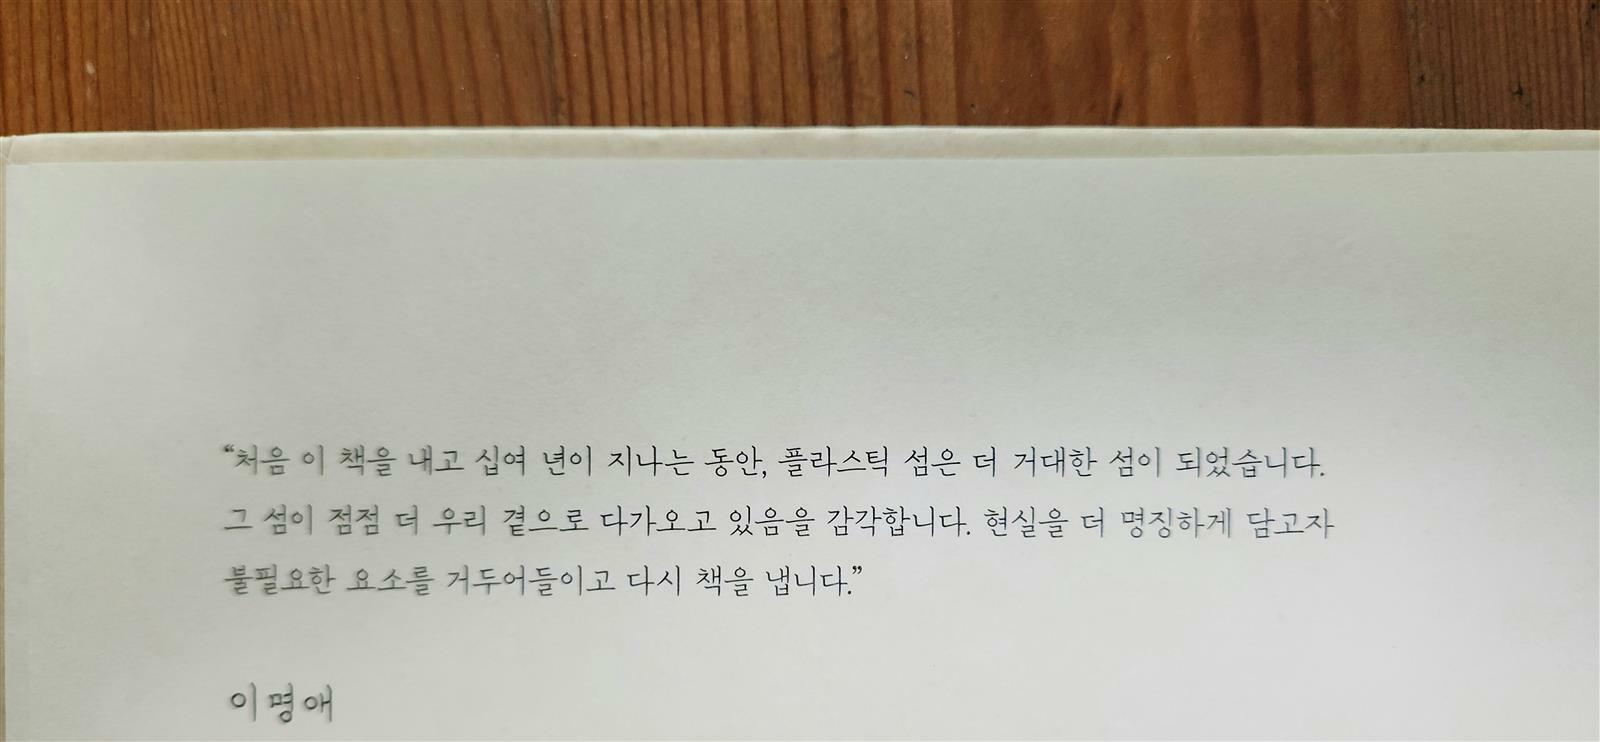 “처음 이 책을 내고 십여 년이 지나는 동안, 플라스틱 섬은 더 거대한 섬이 되었습니다.
그 섬이 점점 더 우리 곁으로 다가오고 있음을 감각합니다. 현실을 더 명징하게 담고자
불필요한 요소를 거두어들이고 다시 책을 냅니다.”
이명애